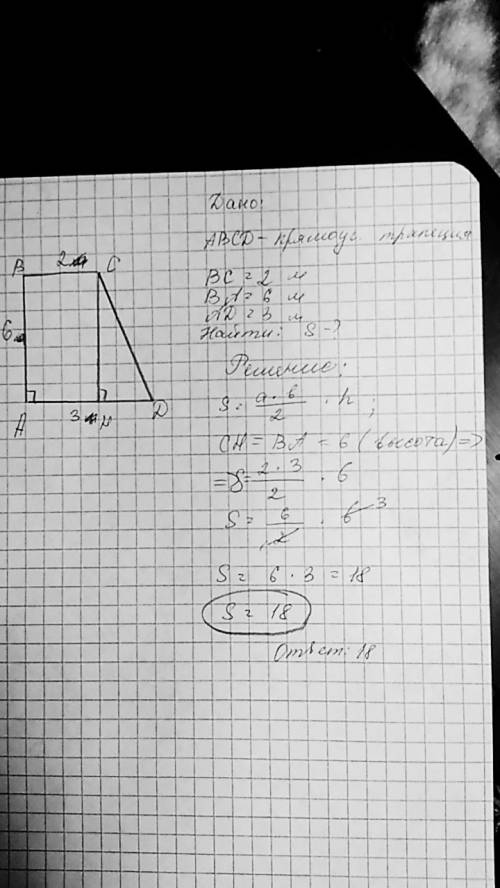 Дано:
ABCD - прямоуг. трапеция
BC = 2 м
BA = 6 м
AD = 3 м
Найти: S - ?
Решение:
S = a · b / 2 · h ;
CH = BA = 6 (высота) =>
=> S = 2 · 3 / 2 · 6
S = 6 / 2 · 6 3
S = 6 · 3 = 18
S = 18
Ответ: 18
B 2м C
6м
A 3м H D